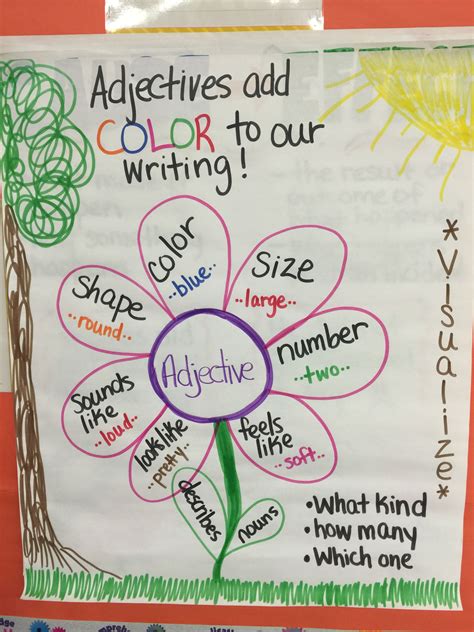 Adjectives add
COLOR to our
writing!
*Visualize*
color
..blue..
Size
..large..
Shape
..round..
number
..two..
Adjective
Sounds
like
..loud..
looks like
..pretty..
feels
like
..soft..
describes
nouns
•What kind
•how many
•Which one